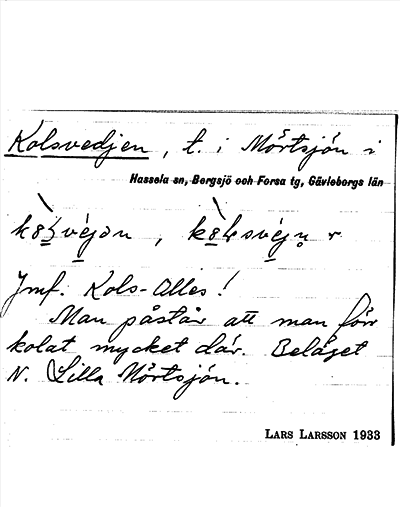 Kolsvedjen, t. i Mörtsjön i
Hassela sn, Bergsjö och Forsa tg, Gävleborgs län
Jmf. Kols-Olles!
Man påstår att man förr
kolat mycket där. Beläget
N. Lilla Mörtsjön.
LARS LARSSON 1933